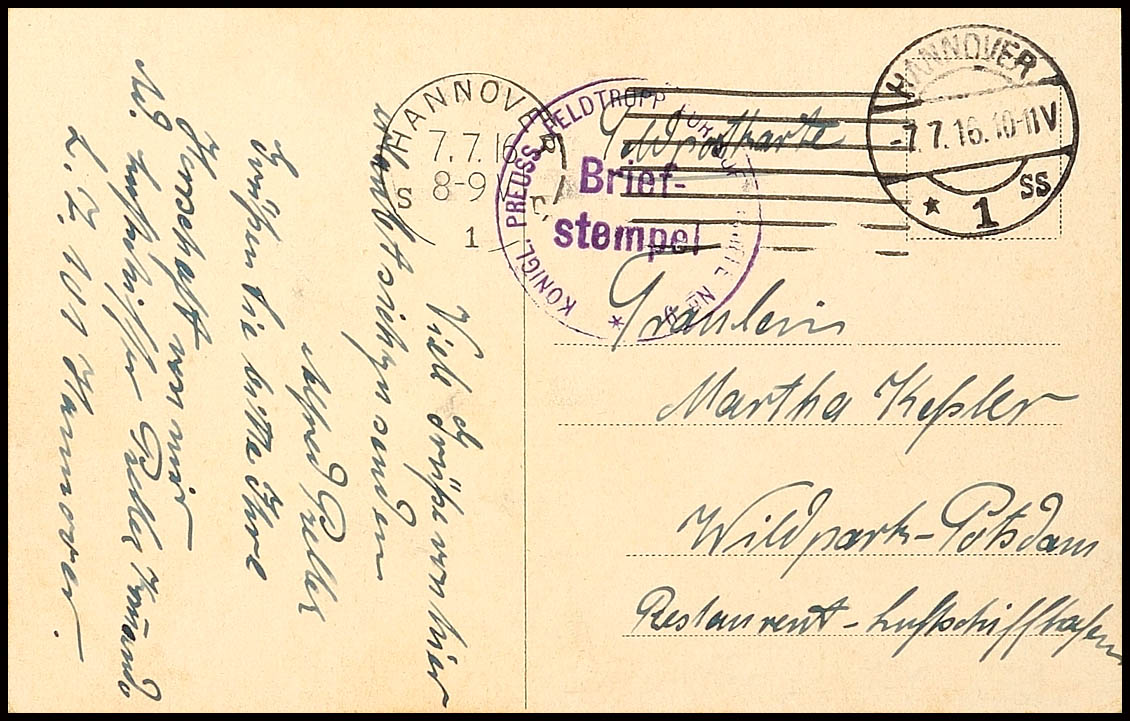 HANNOVER
7.7.16
S 8-9
1
HANNOVER
-7.7.16.10-11V
* 1 SS
KÖNIGL. PREUSS. FELDTRUPP FÜR
Brief-
stempel
Feldpostkarte
Fräulein
Martha Keßler
Wildpark-Potsdam
Restaurent-Luftschiffhafen
Viele Grüße von hier
erlaubt sich zu senden
Alfred Zeller
Grüßen Sie bitte Ihre
Herrschaft von mir
Luftschiffer Zeller Komando
L.Z. Hannover.